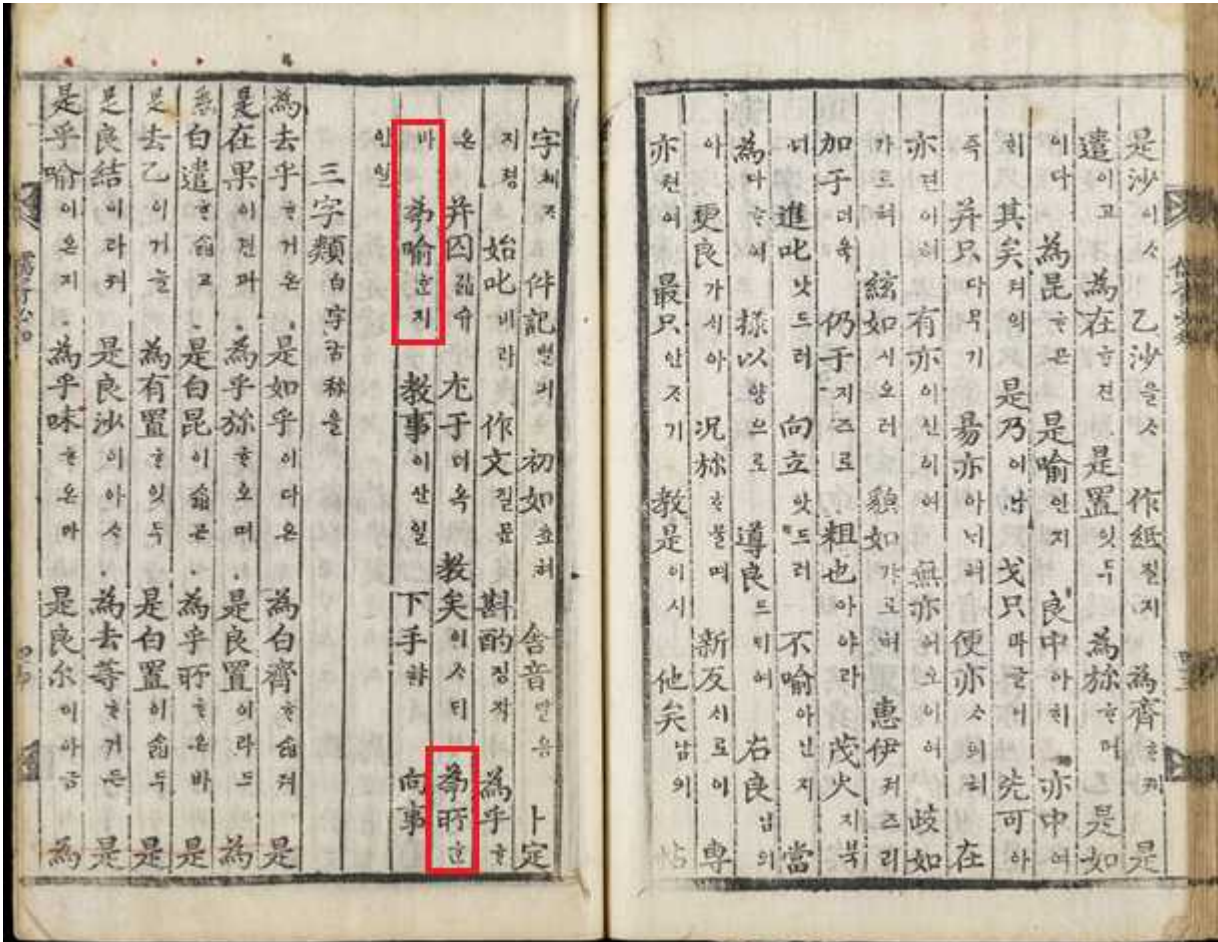 是沙이ᄉᆞ 乙沙을ᄉᆞ 作紙질지 為齊ᄒᆞ져 是
遣이고 為在ᄒᆞ견 是置잇두 為旀ᄒᆞ며 是如
이다 為昆ᄒᆞ곤 是喻인지 良中아ᄒᆡ 亦中여
ᄒᆡ 其矣져의 是乃이나 戈只 先可아
즉 并只다무기 昜亦아니혀 便亦ᄉᆞ의혀 在
亦견이여 有亦이신이여 無亦어오이여 岐如
가로혀 絃如시오러 貌如가로혀 惠伊져즈리
加于더욱 仍于지즈로 粗也아야라 茂火지북
너 進叱낫드러 向立앗드러 不喻아닌지 當
為다ᄒᆞ여 樣以양으로 導良드듸여 右良남의
아 更良가ᄉᆡ아 况旀ᄒᆞ물며 新反ᄉᆡ로이 專
亦젼여 最只안ᄌᆞ기 教是이시 他矣남의 帖
字체ᄌᆞ 件記ᄇᆞᆯ긔 初如초혀 舍音말음 卜定
지졍 始叱비랏 作文질문 斟酌짐작 為乎ᄒᆞ
온 并囚갊슈 尤于더옥 教矣이ᄉᆞ되 為所ᄒᆞᆫ
바 為喻ᄒᆞᆫ지 教事이산일 下手햐 向事
안일
三字類白字
為去乎ᄒᆞ거온 是如乎이다온 為白齊ᄒᆞᄉᆞᆲ져 是
是在果이견과 為乎旀ᄒᆞ오며 是良置이라두 為
為白遣ᄒᆞᄉᆞᆲ고 是白昆이ᄉᆞᆲ곤 為乎所ᄒᆞ온바 是
是去乙이거늘 為有置ᄒᆞ잇두 是白置이ᄉᆞᆲ두 是
是良結이라져 是良沙이아ᄉᆞ 為去等ᄒᆞ거든 是
是乎喻이온지 為乎味ᄒᆞ온마 是良尔이아금 為